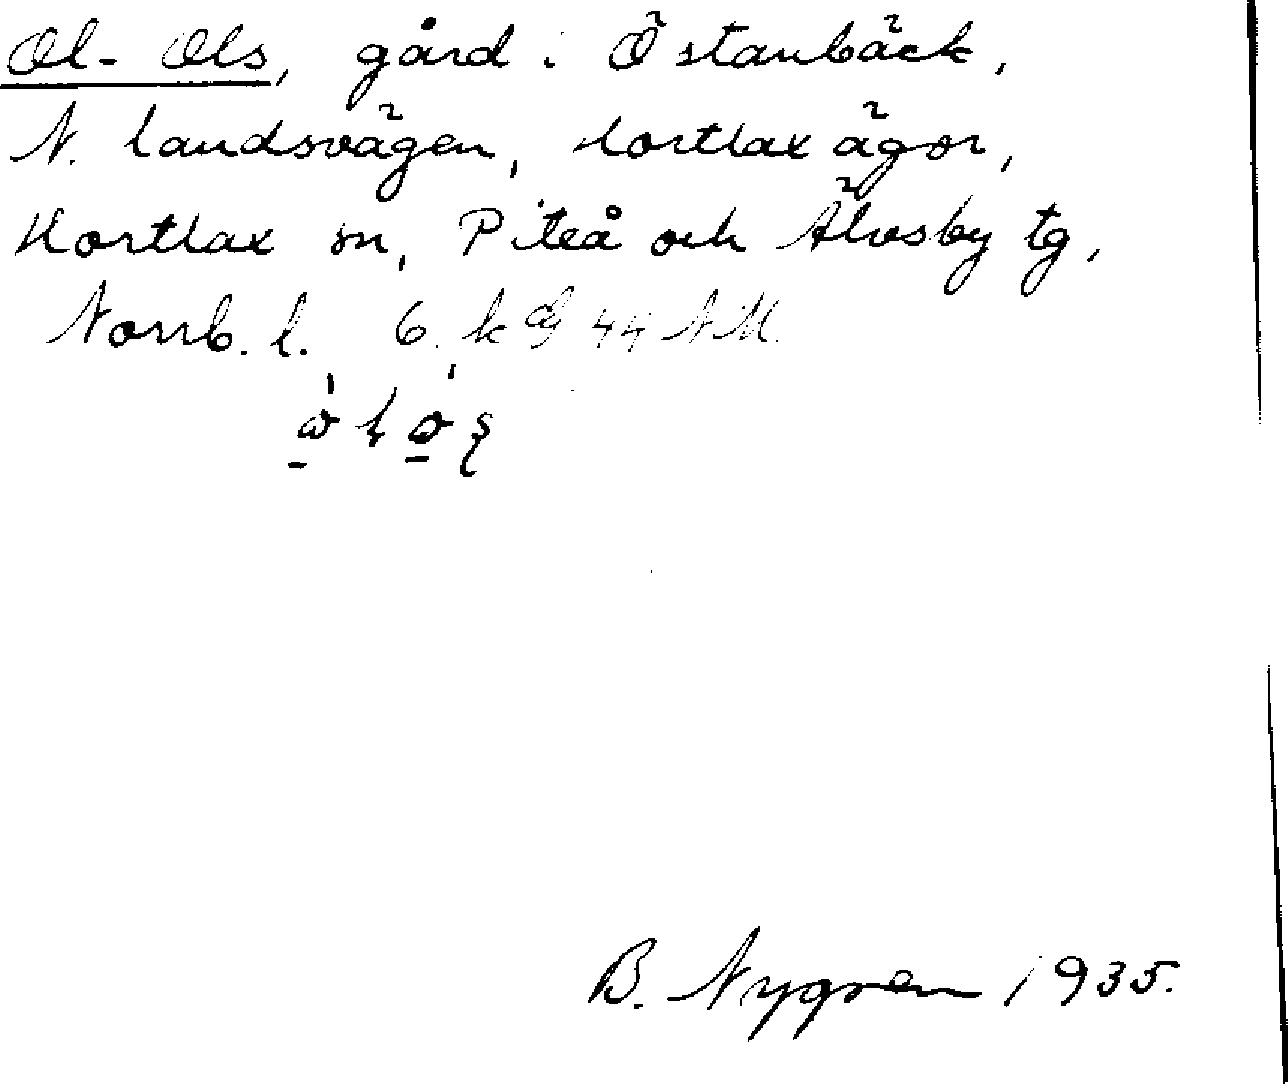 Ol-Ols, gård i Östanbäck,
N. landsvägen, Hortlax ägor,
Hortlax sn, Piteå och Älvsby tg,
Norrb. l. 6. k
B. Nygren 1935.